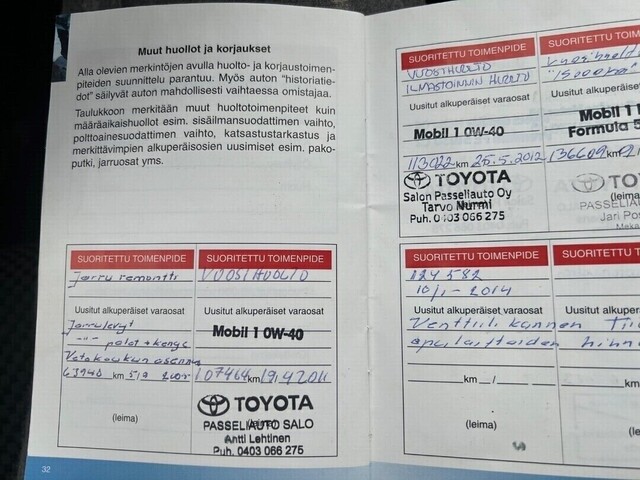 Muut huollot ja korjaukset
Alla olevien merkintöjen avulla huolto- ja korjaustoimen-
piteiden suunnittelu parantuu. Myös auton "historiatie-
dot" säilyvät auton mahdollisesti vaihtaessa omistajaa.
Taulukkoon merkitään muut huoltotoimenpiteet kuin
määräaikaishuollot esim. sisäilmansuodattimen vaihto,
polttoainesuodattimen vaihto, katsastustarkastus ja
merkittävimpien alkuperäisosien uusimiset esim. pako-
putki, jarruosat yms.
SUORITETTU TOIMENPIDE
Jarru remontti
Uusitut alkuperäiset varaosat
Jarrulevyt
-"- palat + kengä
Vetokoukun asennus
63940 km
(leima)
SUORITETTU TOIMENPIDE
VUOSIHUOLTO
Uusitut alkuperäiset varaosat
Mobil 1 0W-40
107464 km 19.4 2011
TOYOTA
PASSELIAUTO SALO
Antti Lehtinen
Puh. 0403 066 275
32
SUORITETTU TOIMENPIDE
VUOSIHUOLTO
ILMASTOINNIN HUOLTO
Uusitut alkuperäiset varaosat
Mobil 1 0W-40
113022 km 25.5.2012
TOYOTA
Salon Passeliauto Oy
Tarvo Nurmi
Puh. 0403 066 275
SUORITETTU TOIMENPIDE
Uusitut alkuperäiset va
Mobil 1
Formula 5
136609 km
TO
(leima)
PASSELIA
Jari Po
SUORITETTU TOIMENPIDE
124 582
10/1 - 2014
Uusitut alkuperäiset varaosat
Venttiili kannen
apulaitteiden
km /
(leima)
SUORITETTU TO
Uusitut alkupe
hihn
km
(le